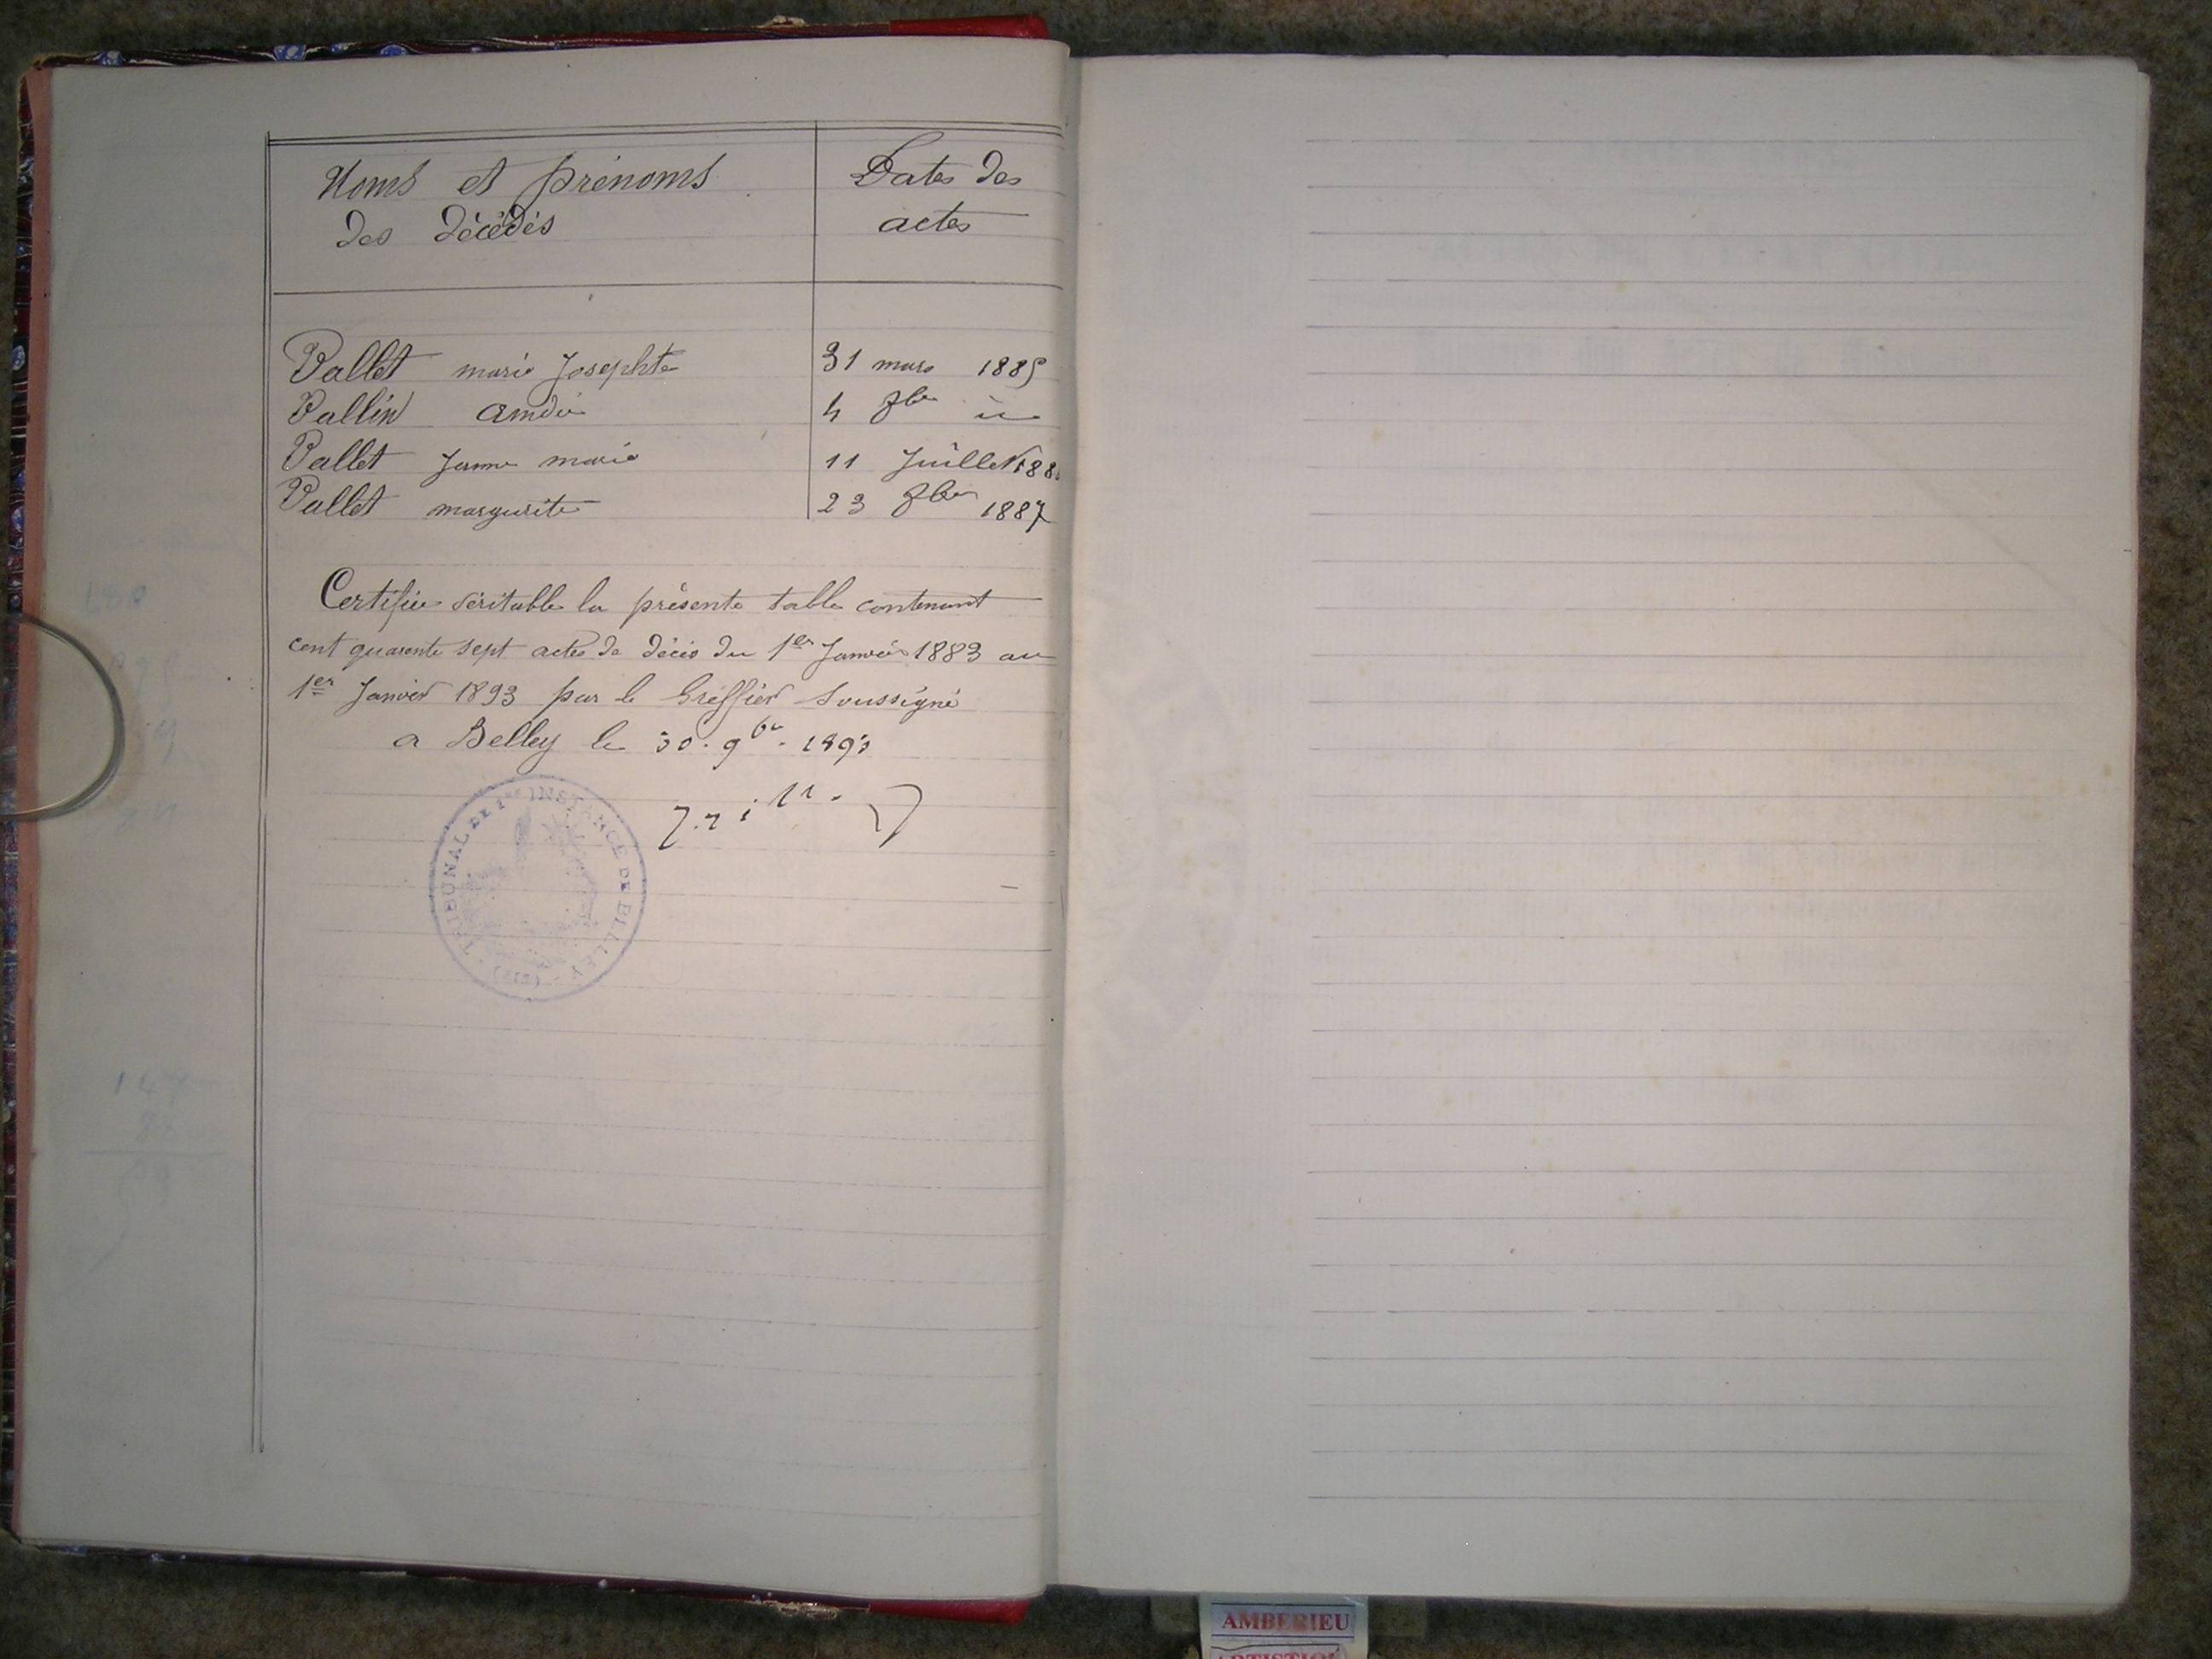 Noms et prénoms
des décédés
Dates des
actes
Vallet marie Josephte 31 mars 1885
Vallin Amdée 4 8bre id
Vallet Jeanne marie 11 Juillet 188
Vallet marguerite 23 8bre 1887
Certifiée véritable la présente table contenant
cent quarante sept actes de décès du 1er Janvier 1883 au
1er Janvier 1893 par le Greffier Soussigné
a Belley le 30. 9bre. 1893
TRIBUNAL DE 1ère INSTANCE DE BELLEY
147
AMBERIEU